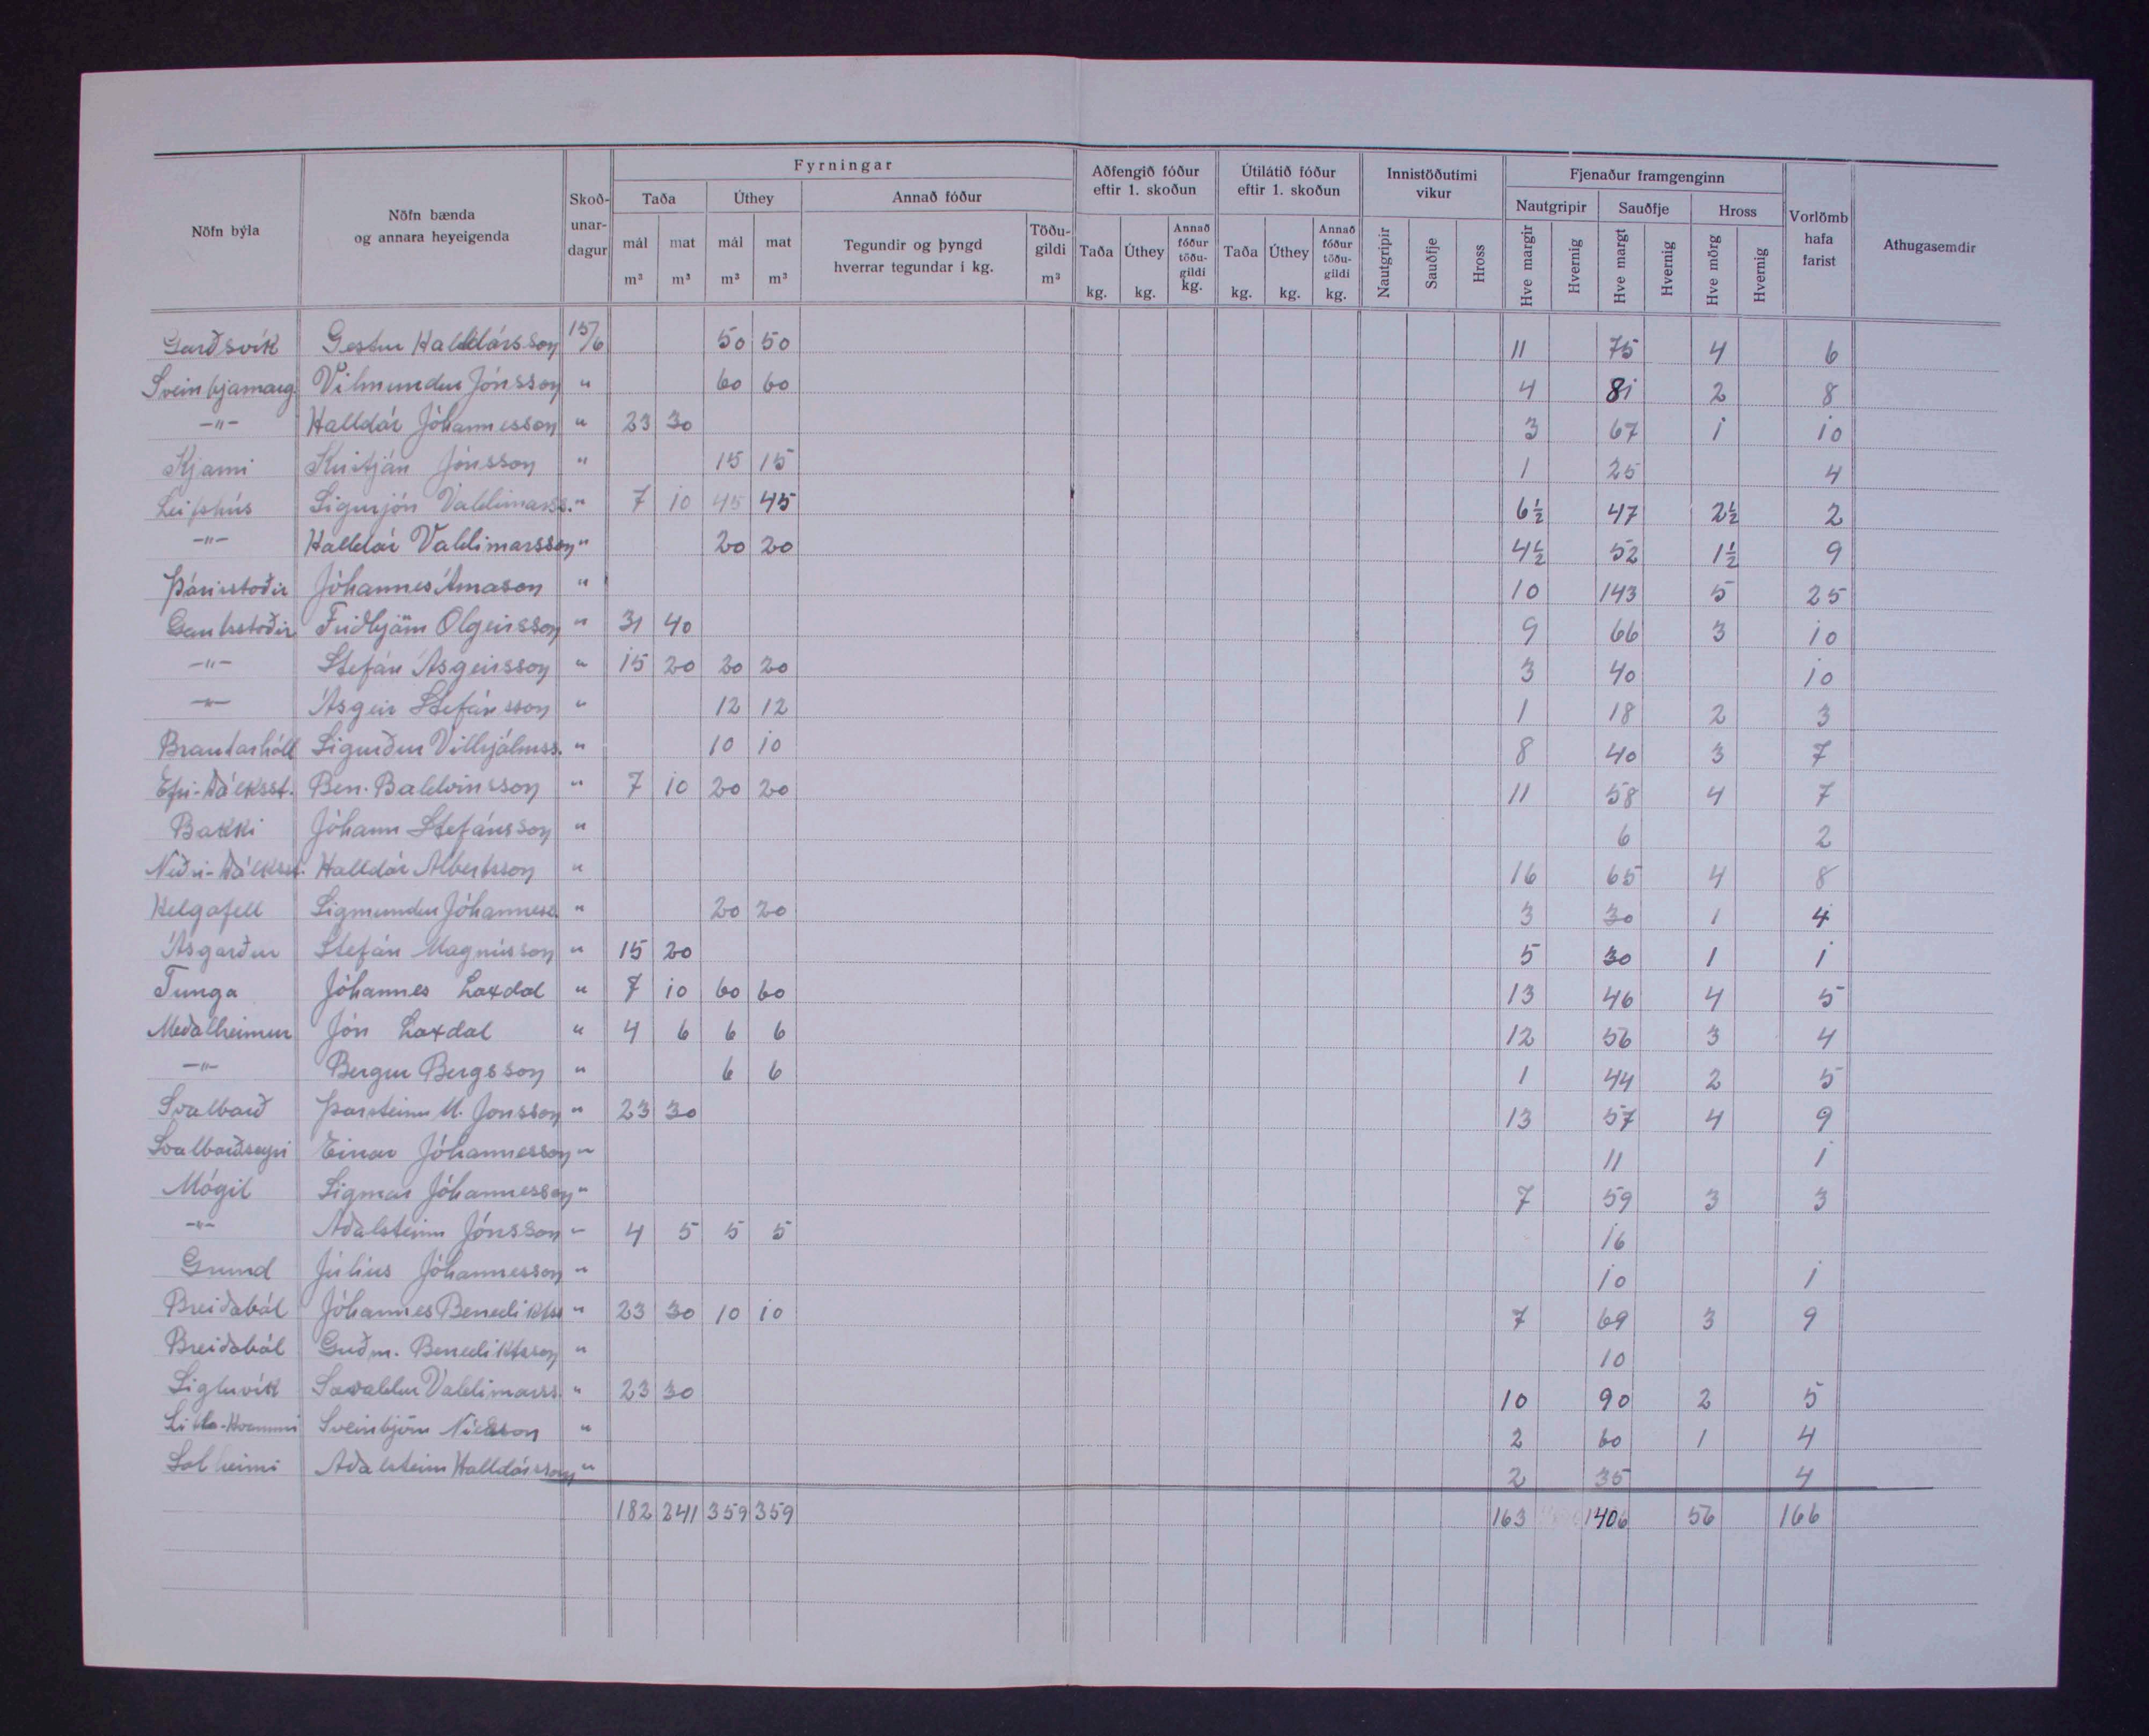 Fyrningar
Aðfengið fóður eftir 1. skoðun
Útilátið fóður eftir 1. skoðun
Innistöðutími vikur
Fjenaður framgenginn
Nöfn býla
Nöfn bænda og annara heyeigenda
Skoð-unar-dagur
Taða
Úthey
Annað fóður
Nautgripir
Sauðfje
Hross
Vorlömb hafa farist
Athugasemdir
mál m³ mat m³ mál m³ mat m³
Tegundir og þyngd hverrar tegundar í kg.
Töðu-gildi m³
Taða kg. Úthey kg. Annað fóður töðu-gildi kg.
Taða kg. Úthey kg. Annað fóður töðu-gildi kg.
Nautgripir Sauðfje Hross
Hve margir Hvernig Hve margt Hvernig Hve mörg Hvernig
Garðsvík Gestur Halldórsson 15/6 50 50 11 75 4 6
Sveinbjarnarg. Vilmundur Jónsson " 60 60 4 81 2 8
-"- Halldór Jóhannesson " 23 30 3 67 1 10
Kjarni Kristján Jónsson " 15 15 1 25 4
Leifshús Sigurjón Valdimarss. " 7 10 45 45 6½ 47 2½ 2
-"- Halldór Valdimarsson " 20 20 4½ 52 1½ 9
Þórisstoðir Jóhannes Árnason " 10 143 5 25
Gautsstoðir Friðbjörn Olgeirsson " 31 40 9 66 3 10
-"- Stefán Ásgeirsson " 15 20 20 20 3 40 10
-"- Ásgeir Stefánsson " 12 12 1 18 2 3
Brautarhóll Sigurður Vilhjálmss. " 10 10 8 40 3 7
Efri-Dálksst. Ben. Baldvinsson " 7 10 20 20 11 58 4 7
Bakki Jóhann Stefánsson " 6 2
Neðri-Dálksst. Halldór Albertsson " 16 65 4 8
Helgafell Sigmundur Jóhanness " 20 20 3 30 1 4
Ásgarður Stefán Magnússon " 15 20 5 30 1 1
Tunga Jóhannes Laxdal " 7 10 60 60 13 46 4 5
Meðalheimur Jón Laxdal " 4 6 6 6 12 56 3 4
-"- Bergur Bergsson " 6 6 1 44 2 5
Svalbarð Þorsteinn M. Jonsson " 23 30 13 57 4 9
Svalbarðseyri Einar Jóhannesson " 11 1
Mógil Sigmar Jóhannesson " 7 59 3 3
-"- Aðalsteinn Jónsson " 4 5 5 5 16
Grund Júlíus Jóhannesson " 10 1
Breiðaból Jóhannes Benediktss " 23 30 10 10 7 69 3 9
Breiðaból Guðm. Benediktsson " 10
Sigluvík Sævaldur Valdimarss. " 23 30 10 90 2 5
Litla-Hvammi Sveinbjörn Níelsson " 2 60 1 4
Solheimi Aðalsteinn Halldórsson " 2 35 4
182 241 359 359 163 1406 56 166